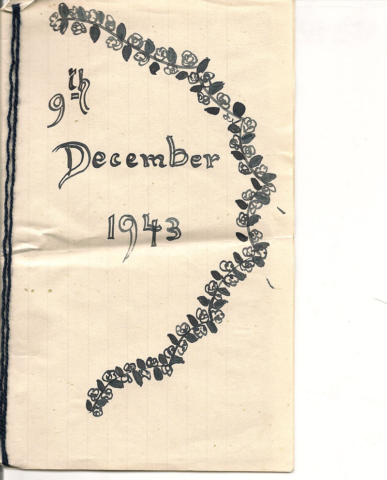 9th
December
1943